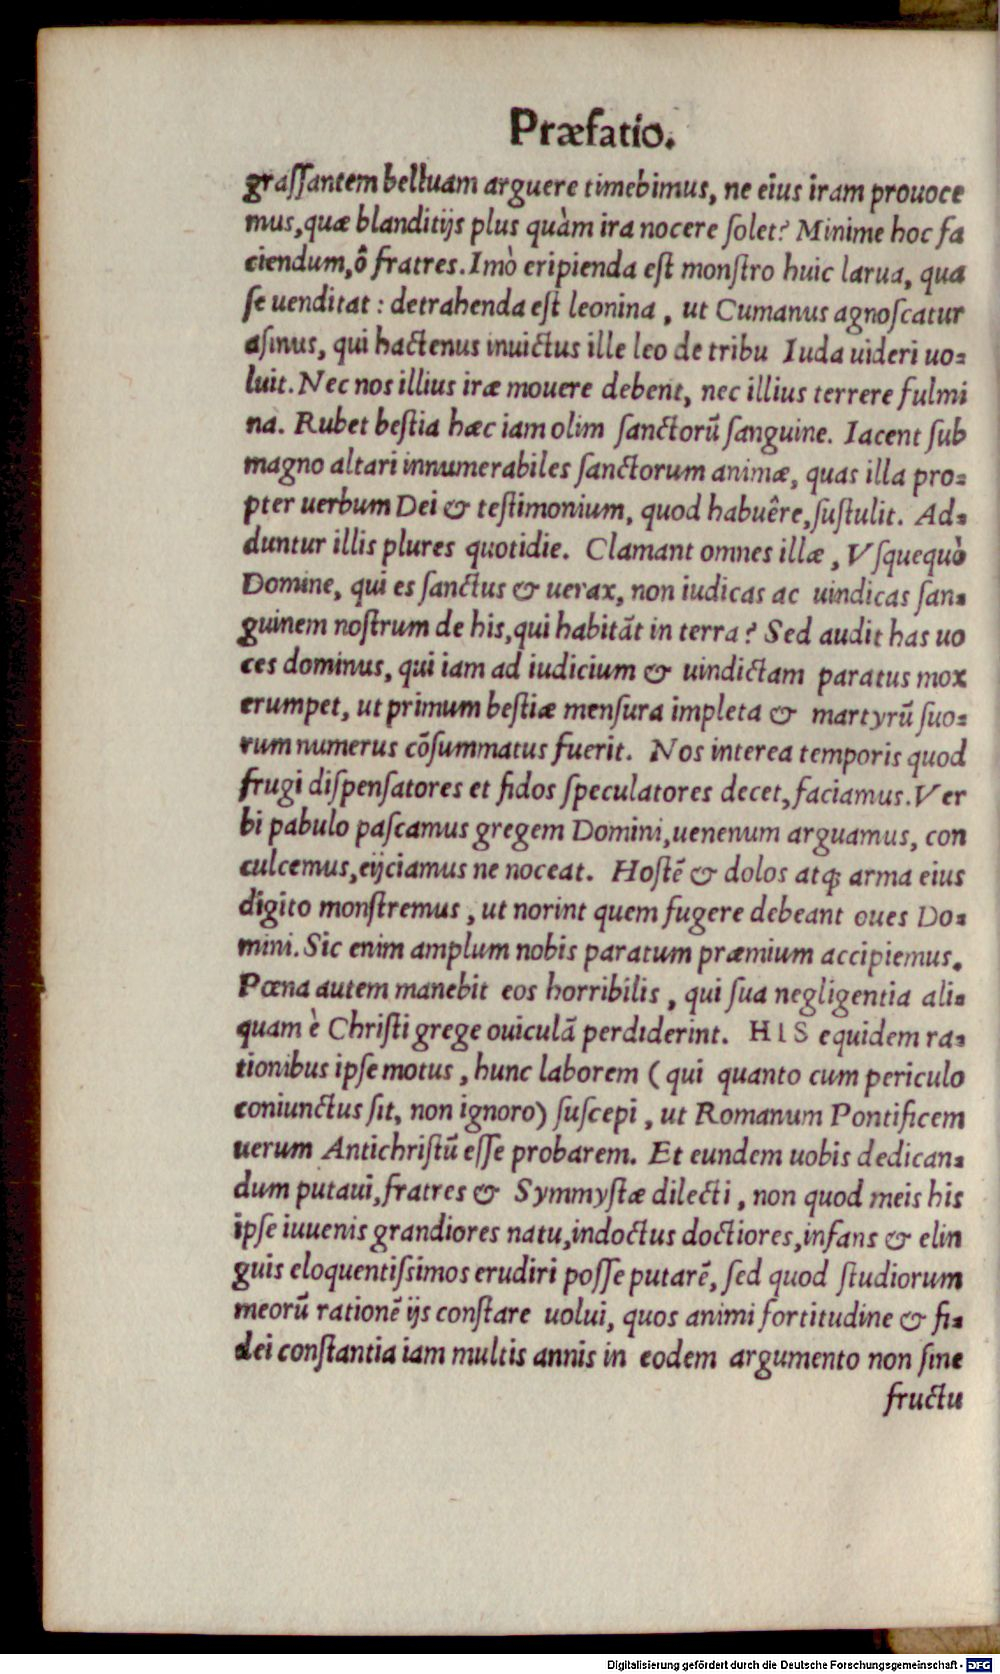 Præfatio.
graſſantem belluam arguere timebimus, ne eius iram prouoce
mus, quæ blanditijs plus quàm ira nocere ſolet? Minime hoc fa
ciendum, ô fratres. Imò eripienda eſt monſtro huic larua, qua
ſe uenditat: detrahenda eſt leonina, ut Cumanus agnoſcatur
aſinus, qui hactenus inuictus ille leo de tribu Iuda uideri uo-
luit. Nec nos illius iræ mouere debent, nec illius terrere fulmi
na. Rubet beſtia hæc iam olim ſanctorũ ſanguine. Iacent ſub
magno altari innumerabiles ſanctorum animæ, quas illa pro-
pter uerbum Dei & teſtimonium, quod habuêre, ſuſtulit. Ad-
duntur illis plures quotidie. Clamant omnes illæ, Vſquequò
Domine, qui es ſanctus & uerax, non iudicas ac uindicas ſan-
guinem noſtrum de his, qui habitãt in terra? Sed audit has uo
ces dominus, qui iam ad iudicium & uindictam paratus mox
erumpet, ut primum beſtiæ menſura impleta & martyrũ ſuo-
rum numerus cõſummatus fuerit. Nos interea temporis quod
frugi diſpenſatores et fidos ſpeculatores decet, faciamus. Ver
bi pabulo paſcamus gregem Domini, uenenum arguamus, con
culcemus, eijciamus ne noceat. Hoſtẽ & dolos atq; arma eius
digito monſtremus, ut norint quem fugere debeant oues Do-
mini. Sic enim amplum nobis paratum præmium accipiemus.
Pœna autem manebit eos horribilis, qui ſua negligentia ali-
quam è Chriſti grege ouiculã perdiderint. HIS equidem ra-
tionibus ipſe motus, hunc laborem (qui quanto cum periculo
coniunctus ſit, non ignoro) ſuſcepi, ut Romanum Pontificem
uerum Antichriſtũ eſſe probarem. Et eundem uobis dedican-
dum putaui, fratres & Symmyſtæ dilecti, non quod meis his
ipſe iuuenis grandiores natu, indoctus doctiores, infans & elin
guis eloquentiſsimos erudiri poſſe putarẽ, ſed quod ſtudiorum
meorũ rationẽ ijs conſtare uolui, quos animi fortitudine & fi-
dei conſtantia iam multis annis in eodem argumento non ſine
fructu
Digitalisierung gefördert durch die Deutsche Forschungsgemeinschaft - DFG